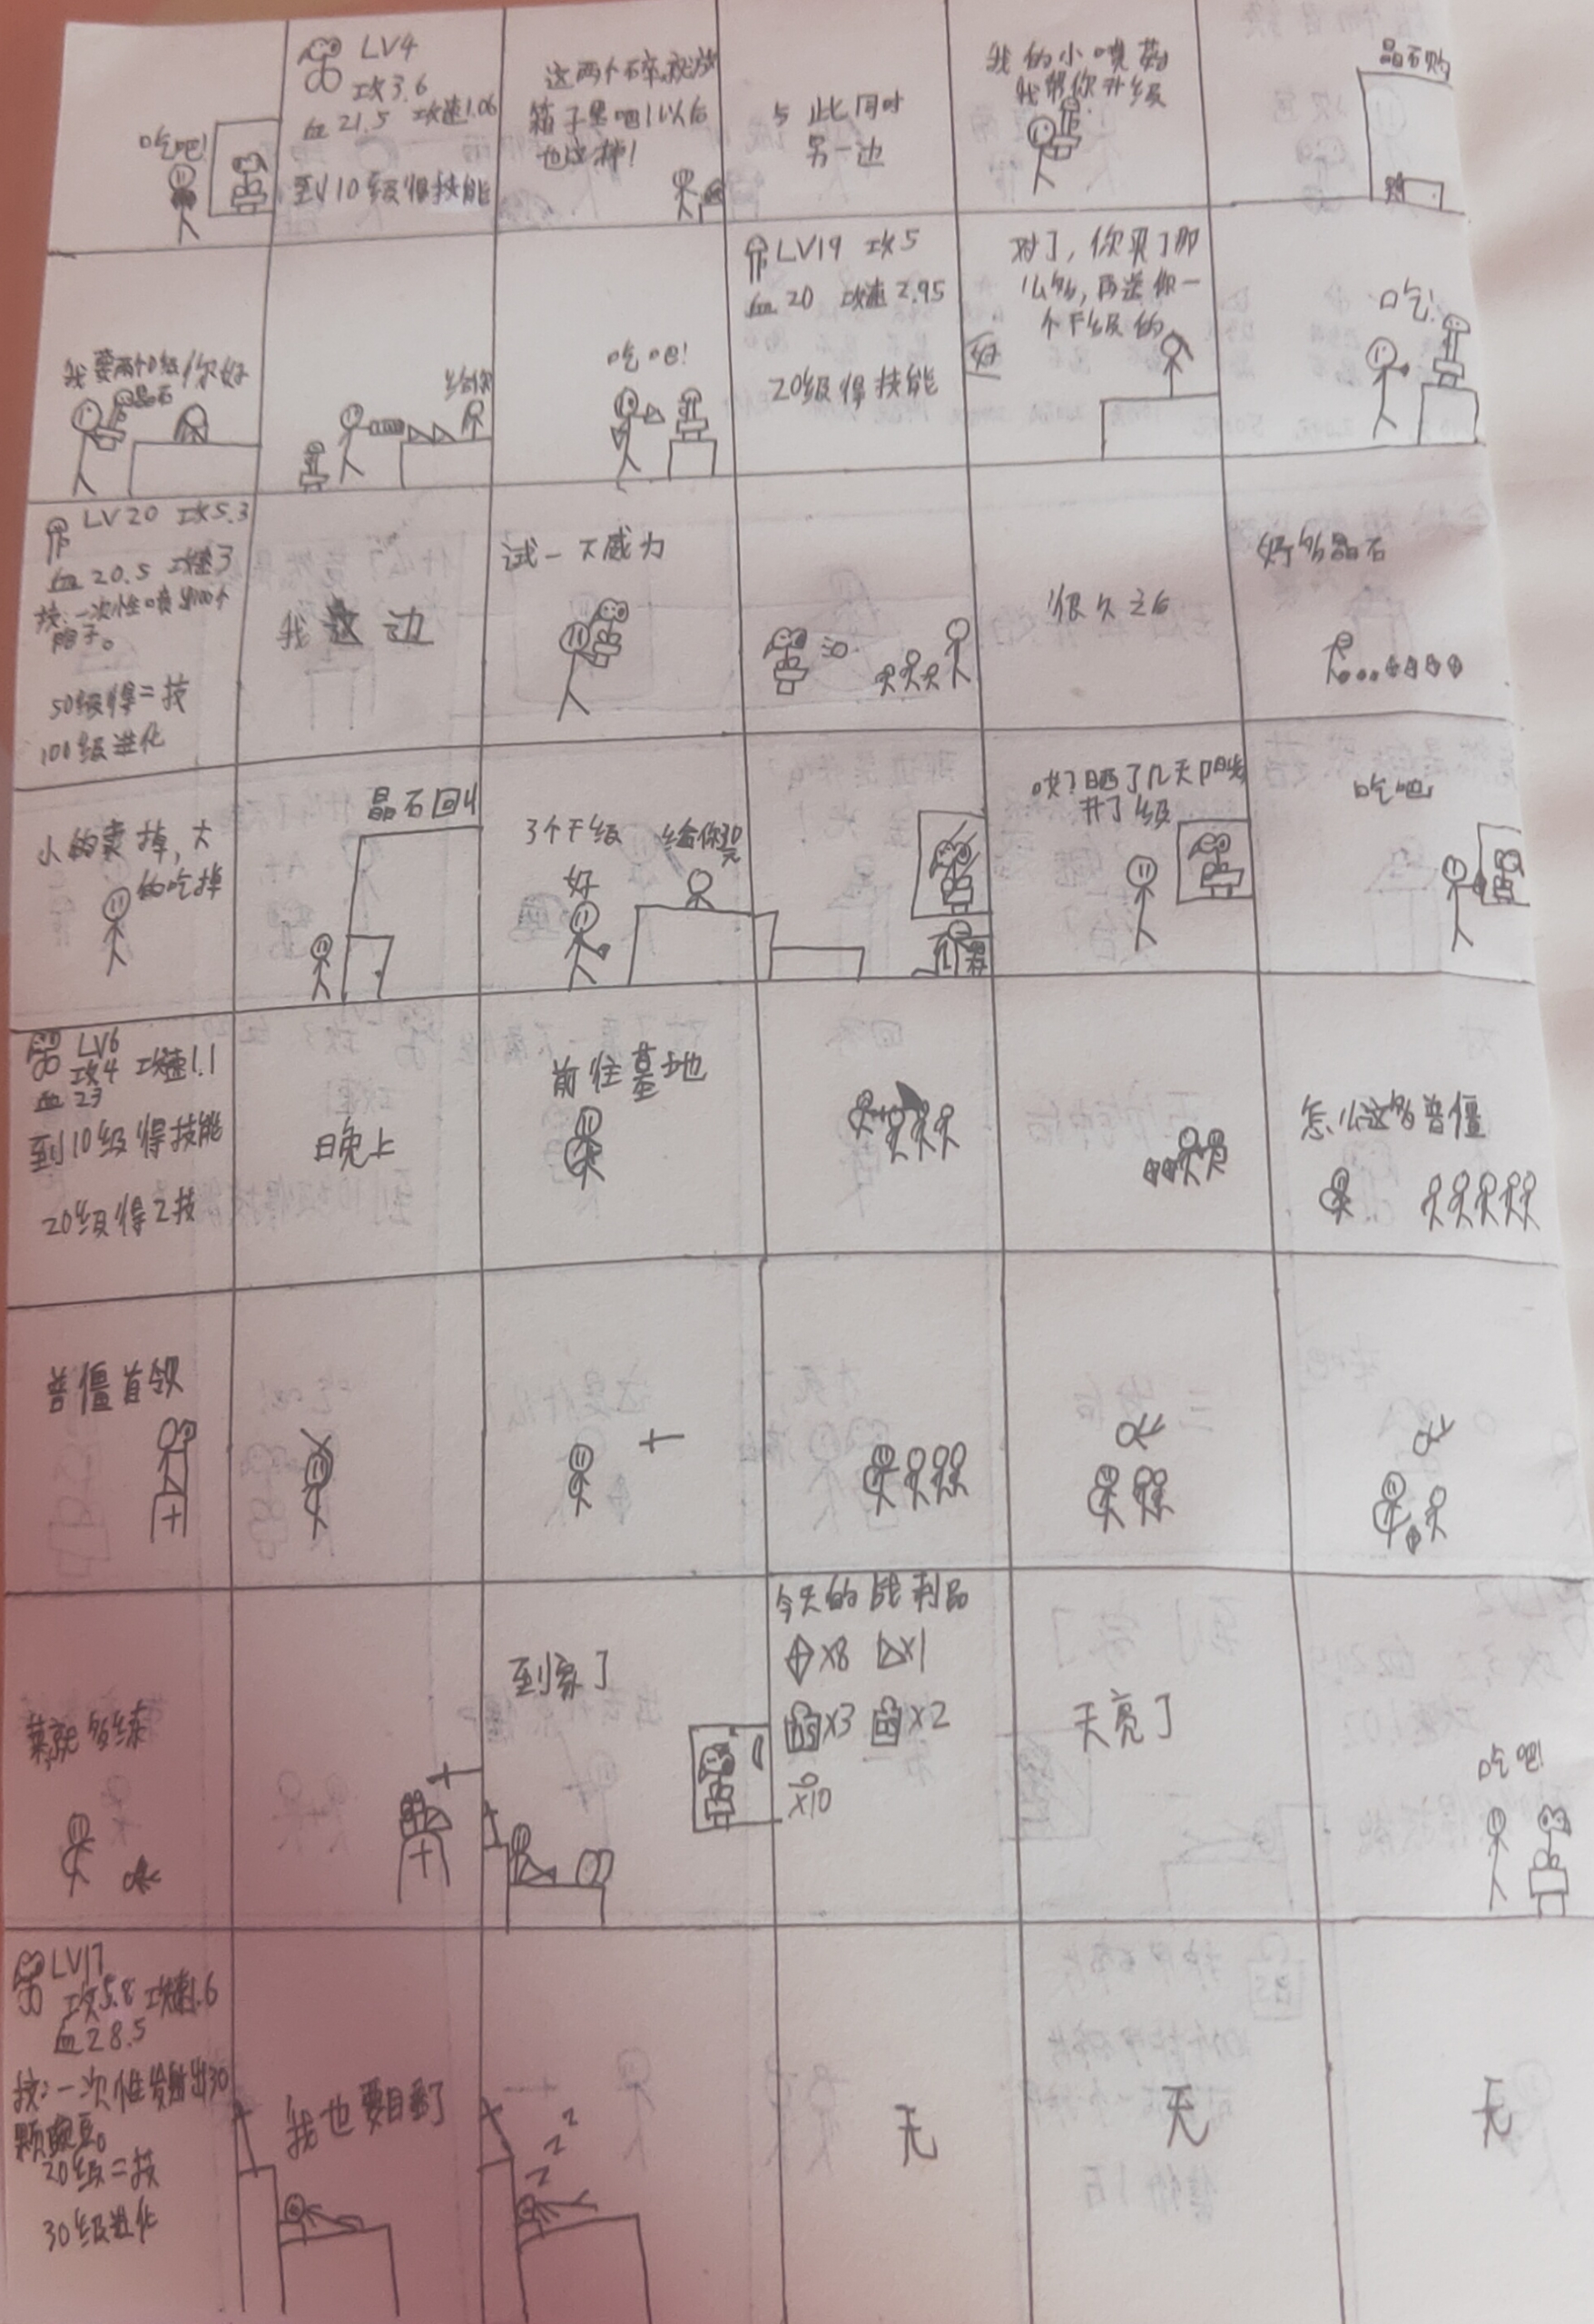 吃吧!
LV4
攻3.6
血21.5 攻速1.06
到10级得技能
这两个碎就放
箱子里吧!以后
也这样!
与此同时
另一边
我的小喷菇
我帮你升级
晶石购
购
我要两个0级
晶石
你好
给你
吃吧!
LV19 攻5
血20 攻速2.95
20级得技能
对了,你买了那
么多,再送你一
个下级的
好
吃!
LV20 攻5.3
血20.5 攻速3
技:一次性喷出100个
胞子。
50级得二技
100级进化
我这边
试一下威力
很久之后
好多晶石
小的卖掉,大
的吃掉
晶石回收
3个下级
好
给你30
元
咦?晒了几天阳光
升了级
吃吧
LV6
攻4 攻速1.1
血23
到10级得技能
20级得2技
晚上
前往墓地
怎么这多普僵
普僵首领
菜就多练
到家了
今天的战利品
x8 x1
x3 x2
x10
天亮了
吃吧!
LV17
攻5.8 攻速1.6
血28.5
技:一次性发射出30
颗豌豆。
20级二技
30级进化
我也要睡了
z z z
无
无
无